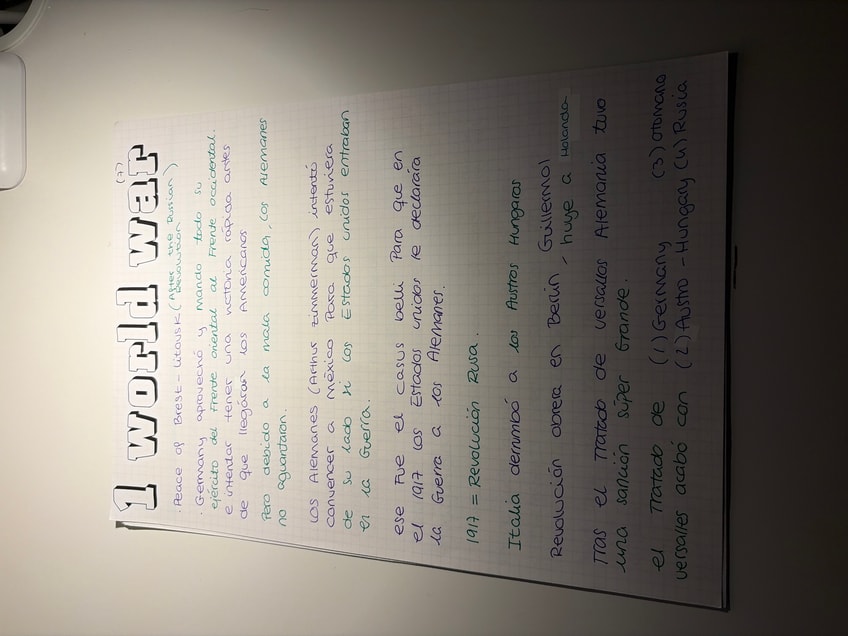 1 world war
(7)
· Peace of Brest-Litovsk (After the Russian
Revolution)
· Germany aprovechó y mando todo su
ejército del frente oriental al Frente occidental.
e intentar tener una victoria rápida antes
de que llegáran los Americanos
Pero debido a la mala comida, los Alemanes
no aguantaron.
Los Alemanes (Arthur zimmerman) intentó
convencer a México Para que estuviera
de su lado si los Estados unidos entraban
en la Guerra.
ese Fue el casus belli Para que en
el 1917 los Estados unidos le declarára
la Guerra a los Alemanes.
1917 = Revolución Rusa.
Italia derrumbó a los Austros Hungaros
Revolución obrera en Berlin, Guillermo
huye a Holanda
Tras el Tratado de versalles Alemania tuvo
una sanción súper Grande.
el Tratado de (1) Germany (3) otomano.
versalles acabó con (2) Austro-Hungary (4) Rusia